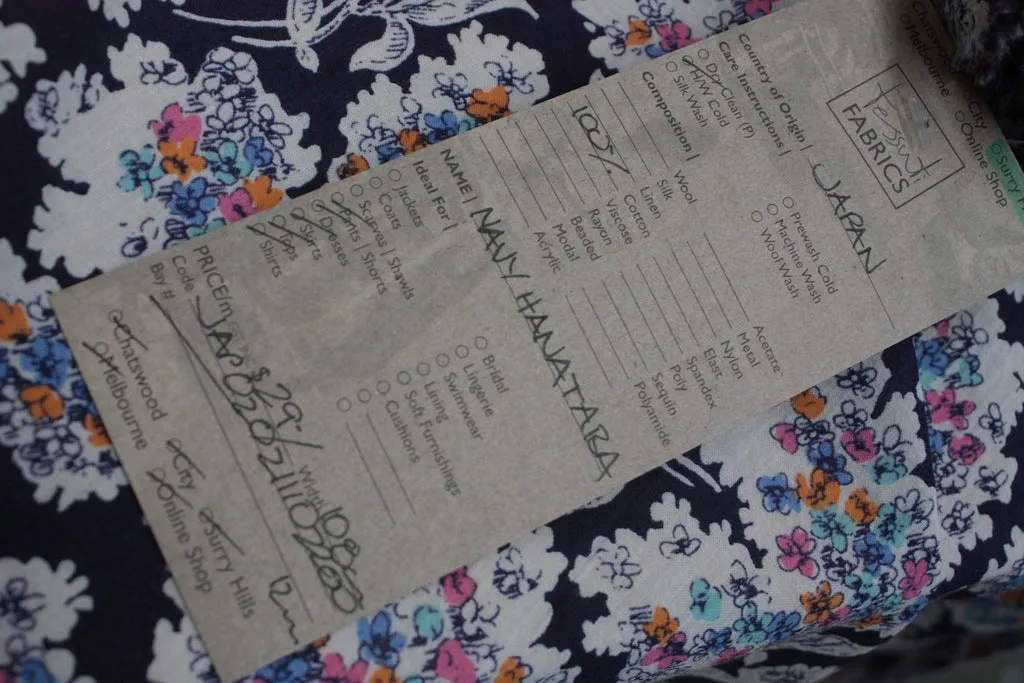 tessuti
FABRICS
City
Surry H
Chatswood
Online Shop
Melbourne
Country of Origin | JAPAN
Care Instructions |
Dry Clean (P)
Prewash Cold
H/W Cold
Machine Wash
Silk Wash
Wool Wash
Composition |
Wool
Acetate
Silk
Metal
Linen
Nylon
100% Cotton
Elast
Viscose
Spandex
Rayon
Poly
Beaded
Sequin
Modal
Polyamide
Acrylic
NAME | NAVY HANATABA
Ideal For |
Jackets
Bridal
Coats
Lingerie
Scarves | Shawls
Swimwear
Pants | Shorts
Lining
Dresses
Soft Furnishings
Skirts
Cushions
Tops
Shirts
PRICE/m $29/ Width 108
Code
Buy #
12m
Chatswood City Surry Hills
Melbourne Online Shop